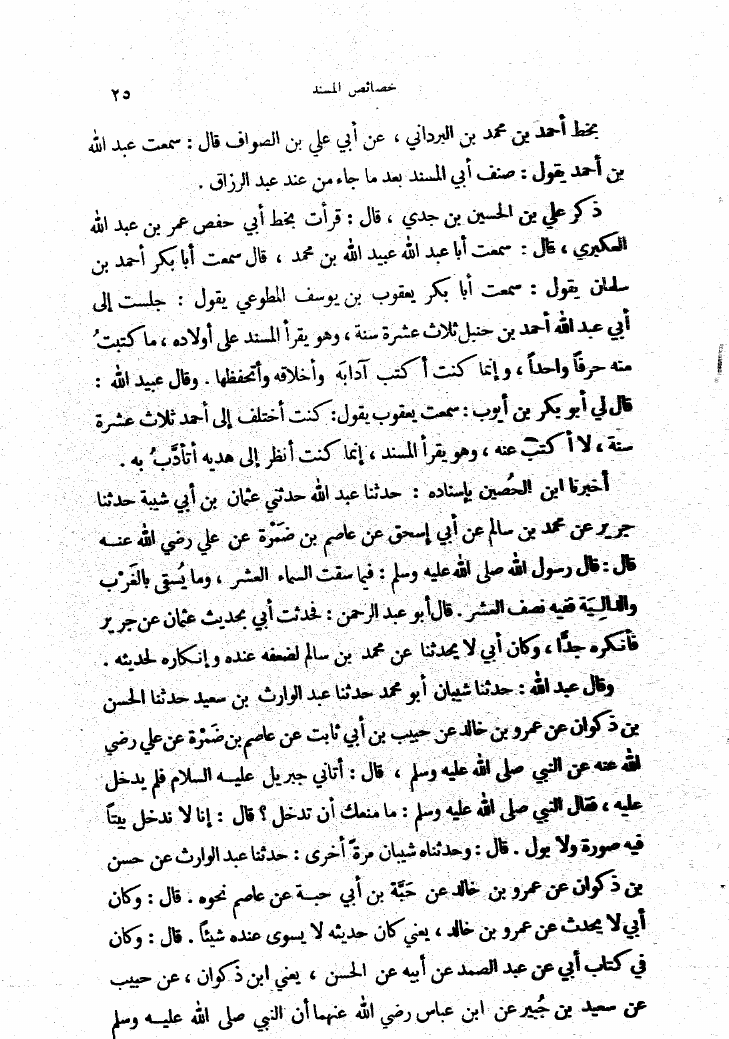 خصائص المسند ٢٥
بخط أحمد بن محمد بن البرداني ، عن أبي علي بن الصواف قال : سمعت عبد الله
بن أحمد يقول : صنف أبي المسند بعد ما جاء من عند عبد الرزاق .
ذكر علي بن الحسين بن جدي ، قال : قرأت بخط أبي حفص عمر بن عبد الله
العكبري ، قال : سمعت أبا عبد الله عبيد الله بن محمد ، قال سمعت أبا بكر أحمد بن
سلمان يقول : سمعت أبا بكر يعقوب بن يوسف المطوعي يقول : جلست إلى
أبي عبد الله أحمد بن حنبل ثلاث عشرة سنة ، وهو يقرأ المسند على أولاده ، ما كتبتُ
منه حرفاً واحداً ، وإنما كنت أكتب آدابَه وأخلاقه وأتحفظها . وقال عبيد الله :
قال لي أبو بكر بن أيوب : سمعت يعقوب يقول : كنت أختلف إلى أحمد ثلاث عشرة
سنة ، لا أكتب عنه ، وهو يقرأ المسند ، إنما كنت أنظر إلى هديه أتأدَّبُ به .
أخبرنا ابن الحُصين بإسناده : حدثنا عبد الله حدثني عثمان بن أبي شيبة حدثنا
جرير عن محمد بن سالم عن أبي إسحق عن عاصم بن ضَمْرة عن علي رضي الله عنه
قال : قال رسول الله صلى الله عليه وسلم : فيما سقت السماء العشر ، وما يُسقى بالغَرْب
والدالِيَة ففيه نصف العشر . قال أبو عبد الرحمن : فحدثت أبي بحديث عثمان عن جرير
فأنكره جدًّا ، وكان أبي لا يحدثنا عن محمد بن سالم لضعفه عنده وإنكاره لحديثه .
وقال عبد الله : حدثنا شيبان أبو محمد حدثنا عبد الوارث بن سعيد حدثنا الحسن
بن ذكوان عن عمرو بن خالد عن حبيب بن أبي ثابت عن عاصم بن ضَمْرة عن علي رضي
الله عنه عن النبي صلى الله عليه وسلم ، قال : أتاني جبريل عليه السلام فلم يدخل
عليه ، فقال النبي صلى الله عليه وسلم : ما منعك أن تدخل ؟ قال : إنا لا ندخل بيتاً
فيه صورة ولا بول . قال : وحدثناه شيبان مرةً أخرى : حدثنا عبد الوارث عن حسن
بن ذكوان عن عمرو بن خالد عن حَبَّة بن أبي حبة عن عاصم نحوه . قال : وكان
أبي لا يحدث عن عمرو بن خالد ، يعني كان حديثه لا يسوى عنده شيئاً . قال : وكان
في كتاب أبي عن عبد الصمد عن أبيه عن الحسن ، يعني ابن ذكوان ، عن حبيب
عن سعيد بن جُبير عن ابن عباس رضي الله عنهما أن النبي صلى الله عليه وسلم